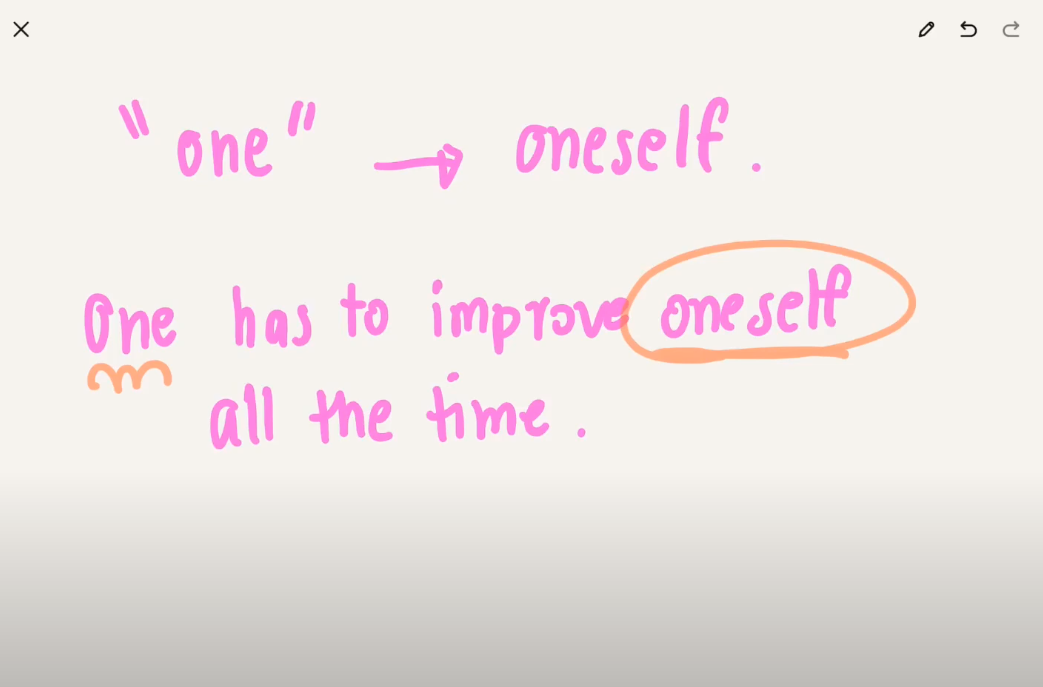 "one" → oneself.
One has to improve oneself
all the time.